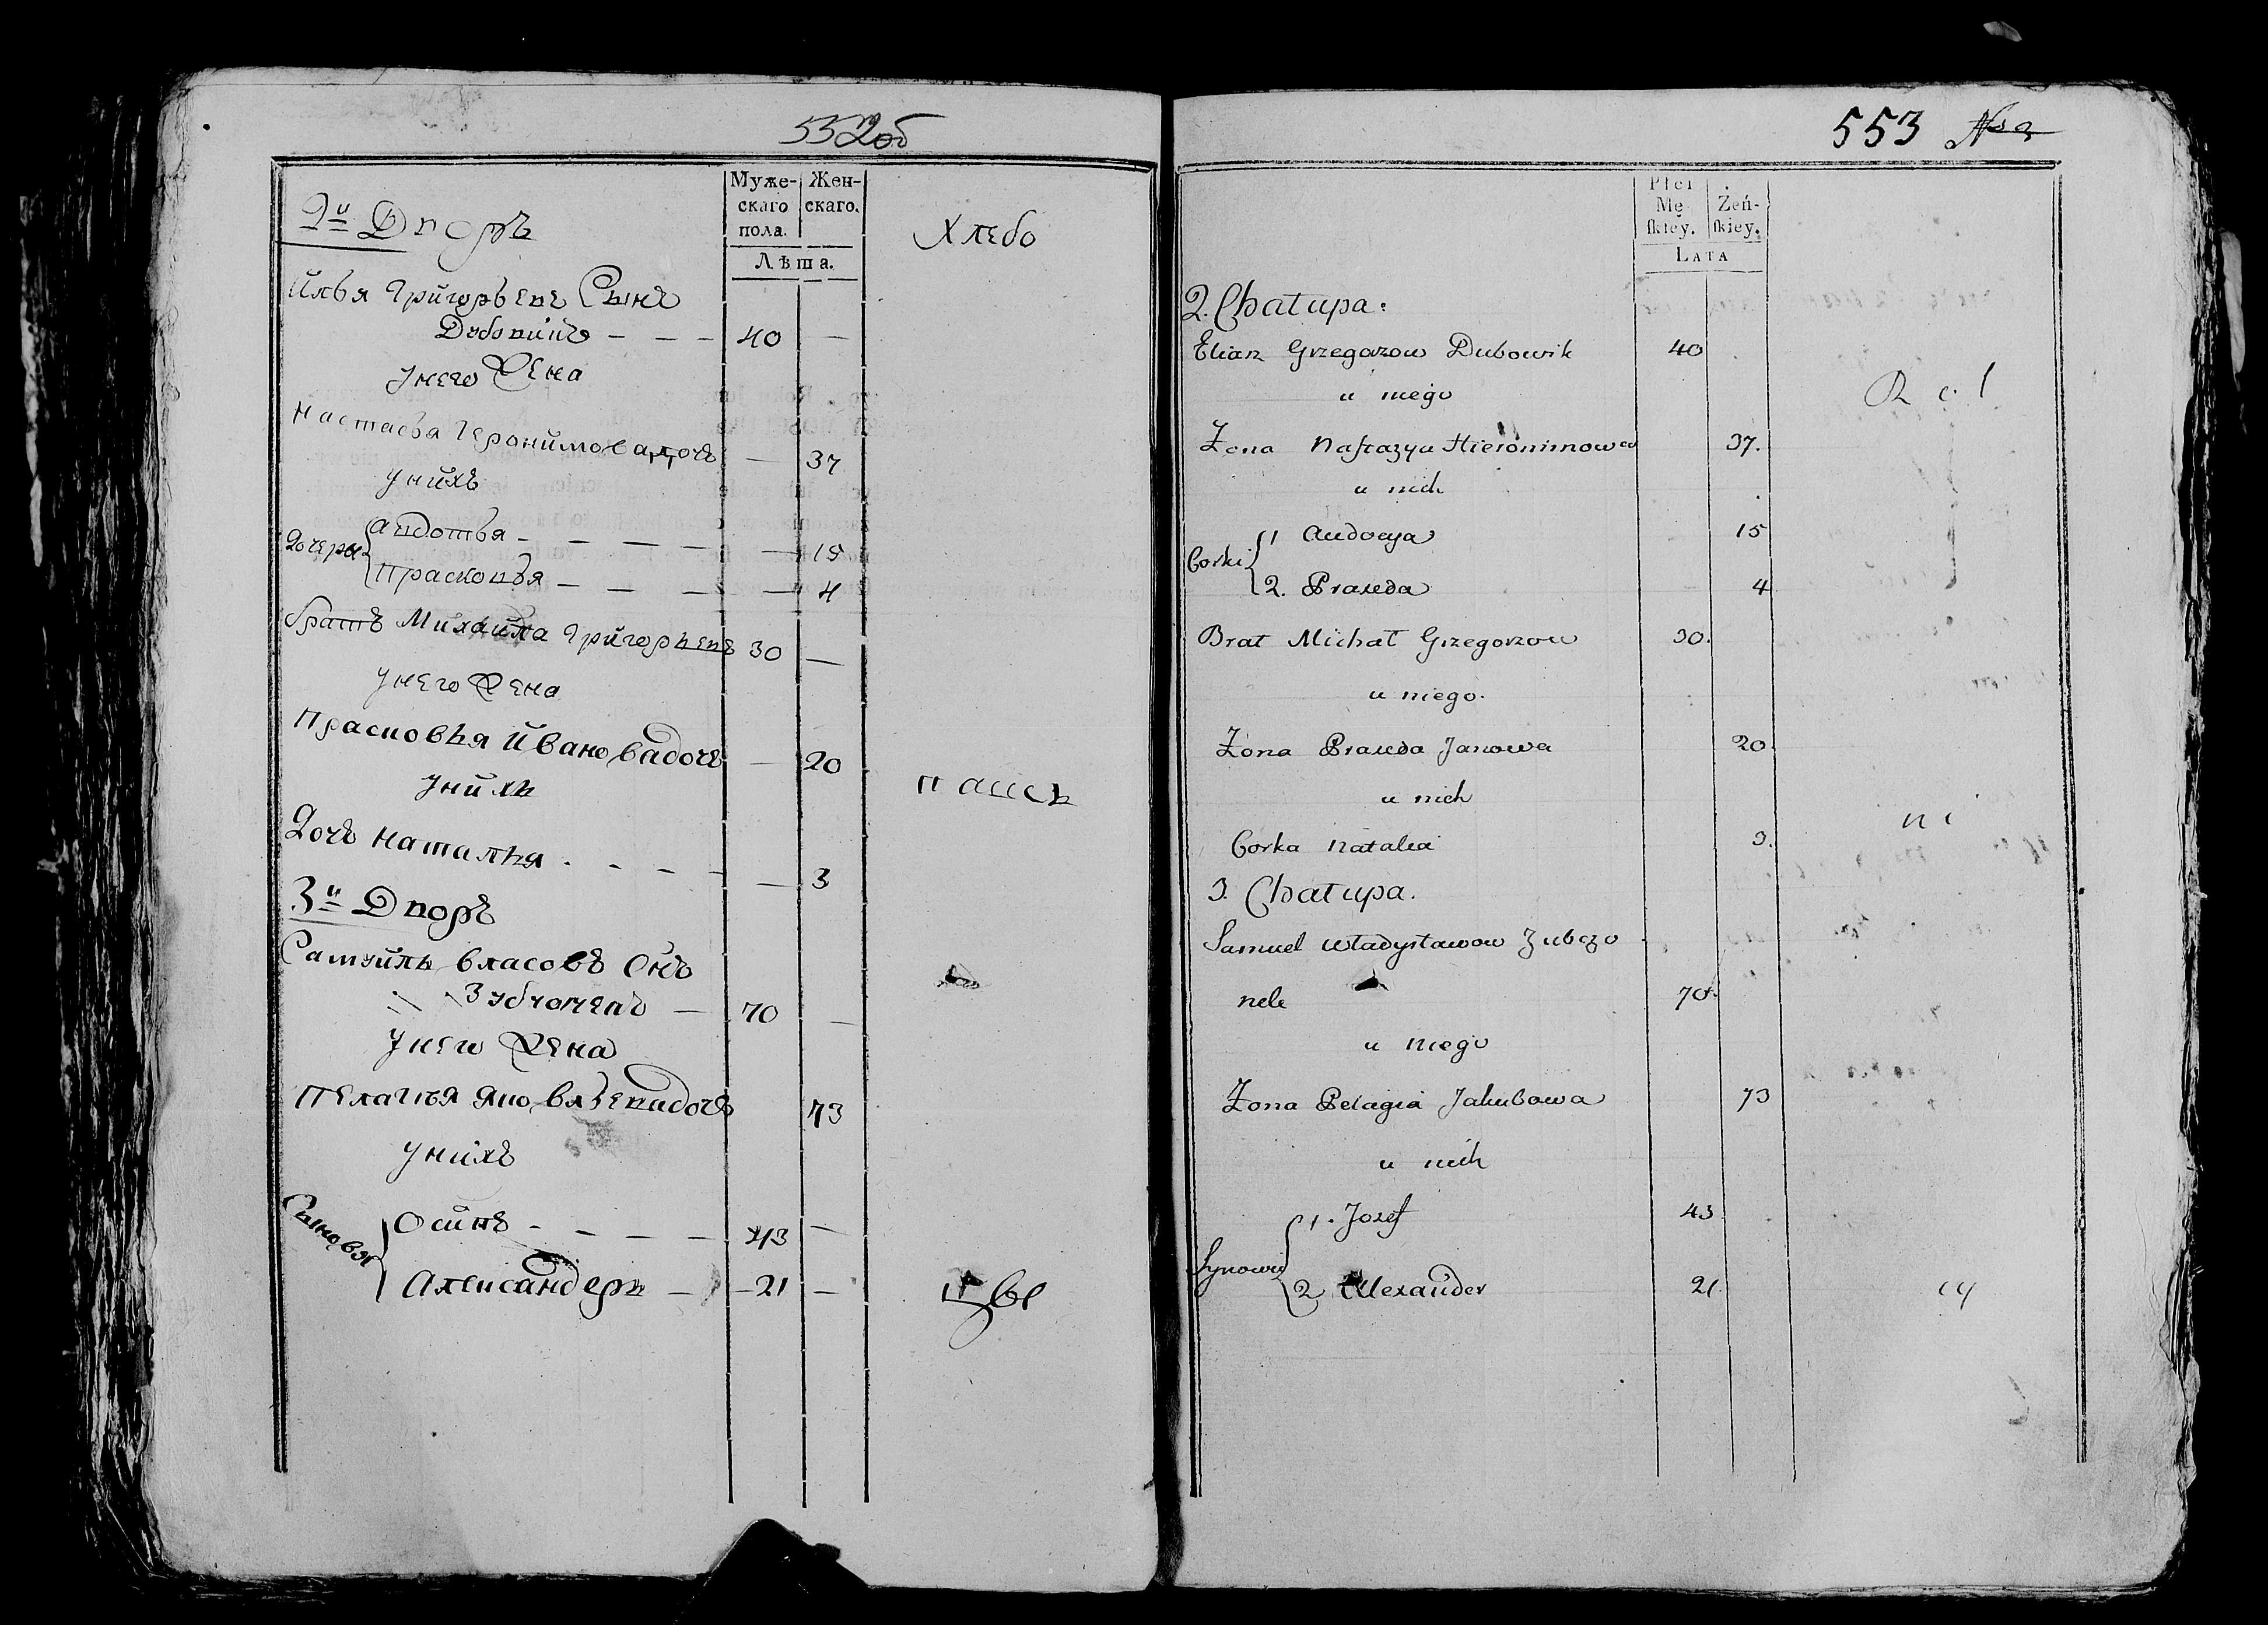 552об
2й Дворъ
Муже-
скаго
пола.
Жен-
скаго.
Лѣта.
Хлебо
Илья Григорьевъ Сынъ
Дубовикъ — — — 40 —
унего Жена
Настасья Геронимова дочь — 37
унихъ
Дочери
Авдотья — — — — 15
Прасковья — — — — 4
братъ Михайла Григорьевъ 30 —
унего Жена
Прасковья Иванова дочь — 20
унихъ
пашь
Дочь Наталья — — — 3
3й Дворъ
Самуйлъ власовъ Снъ
— 70 —
унего Жена
Пелагия дочь 73
унихъ
Сыновья
Осипъ — — — — 43 —
Александеръ — 21 —
цвы
553
Płci
Mę-
ſkiey.
Żeń-
ſkiey.
LATA
2. Chałupa:
Eliasz Grzegorzow Dubowik 40
u niego
Żona Nastazya Hieronimowa 37.
u nich
Corki
1 Audocya 15
2. Praxeda 4
Brat Michał Grzegorzow 30.
u niego.
Żona Praxeda Janowa 20.
u nich
ni
Corka Natalia 3.
3. Chałupa.
Samuel Władysławow Zubczo
nek 70.
u niego
Żona Pelagia Jakubowa 73
u nich
Synowie
1. Jozef 43
2 Alexander 21.
cy